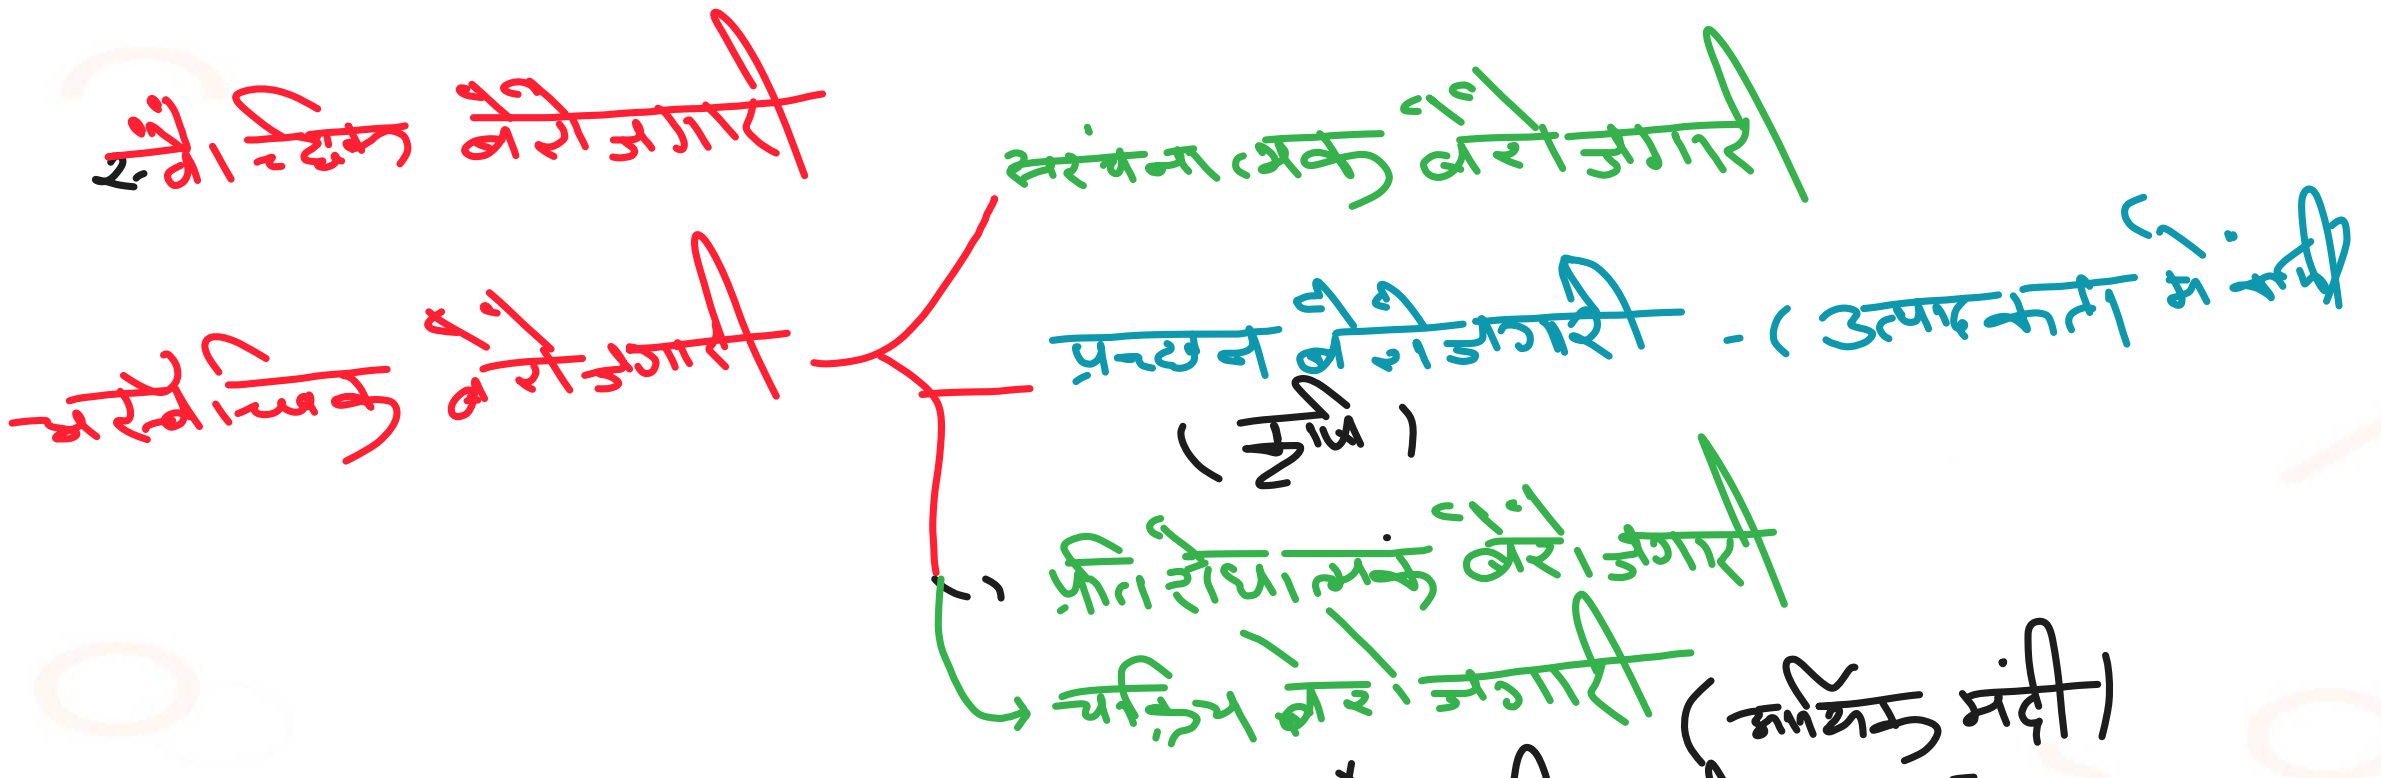 2. ऐच्छिक बेरोजगारी
अनैच्छिक बेरोजगारी
संरचनात्मक बेरोजगारी
प्रच्छन्न बेरोजगारी - (उत्पादकता में कमी
(कृषि)
बेरोजगारी
चक्रिय बेरोजगारी (आर्थिक मंदी)